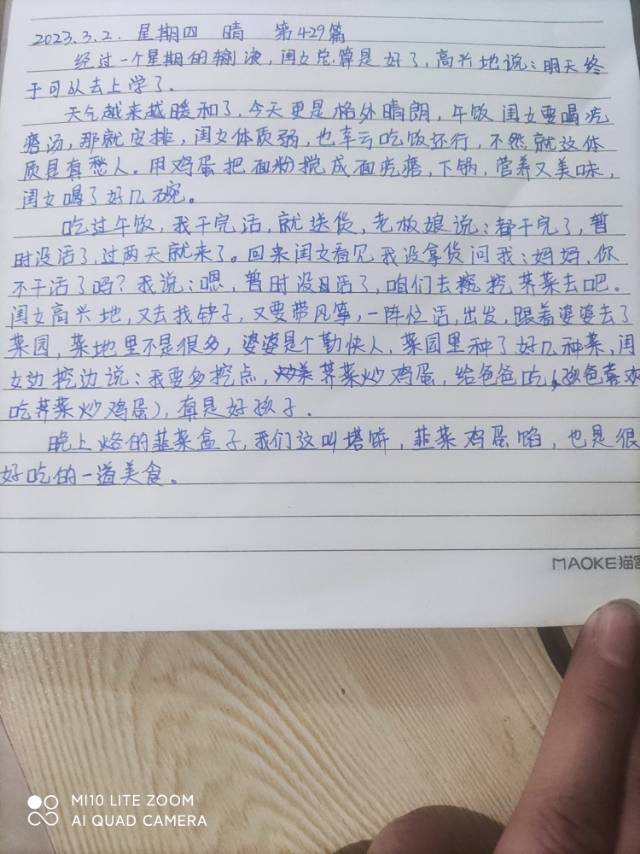 2023.3.2. 星期四 晴 第429篇
经过一个星期的输液,闺女总算是好了,高兴地说:明天终
于可以去上学了.
天气越来越暖和了,今天更是格外晴朗,午饭闺女要喝疙
瘩汤,那就安排,闺女体质弱,也幸亏吃饭还行,不然就这体
质是真愁人.用鸡蛋把面粉搅成面疙瘩,下锅,营养又美味,
闺女喝了好几碗。
吃过午饭,我干完活,就送货,老板娘说:都干完了,暂
时没活了,过两天就来了。回来闺女看见我没拿货问我:妈妈,你
不干活了吗?我说:嗯,暂时没活了,咱们去挖挖荠菜去吧.
闺女高兴地,又去找铲子,又要带风筝,一阵忙活,出发,跟着婆婆去了
菜园,菜地里不是很多,婆婆是个勤快人,菜园里种了好几种菜,闺
女边挖边说:我要多挖点,荠菜炒鸡蛋,给爸爸吃(孩爸喜欢
吃荠菜炒鸡蛋),真是好孩子.
晚上烙的韭菜盒子,我们这叫塔饼,韭菜鸡蛋馅,也是很
好吃的一道美食。
MAOKE猫客
MI10 LITE ZOOM
AI QUAD CAMERA